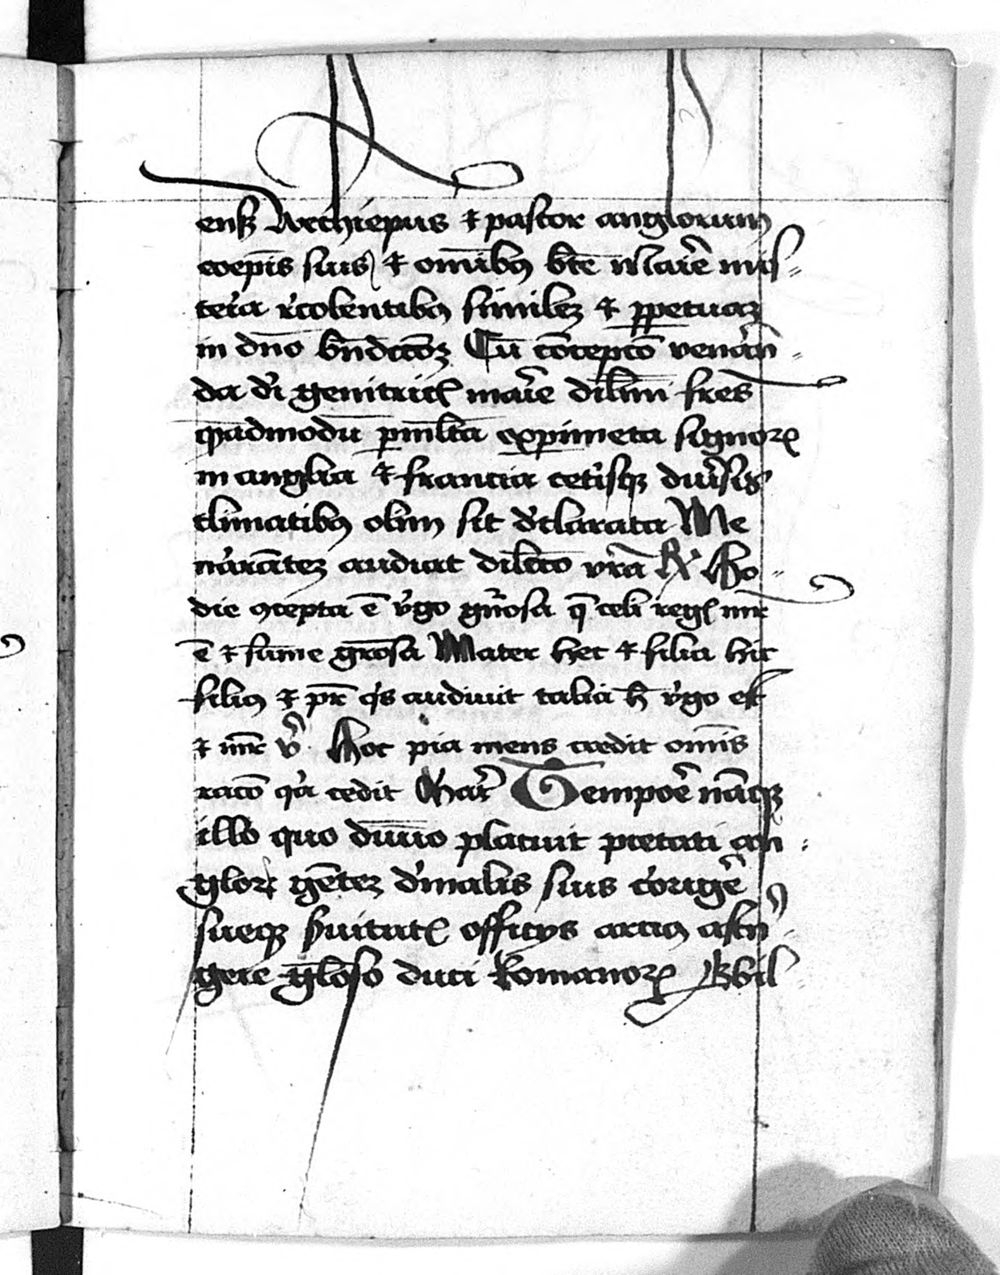 ens Archiepus et pastor anglorum
coepis suis et omibus bte Marie mis=
teria recolentibus similez et ppetuaz
in dno bndiccoz Cu concepcio venan=
da dei genitricis marie dilmi fres
quadmodu pmlta expimeta signorum
in anglia et francia ceterisque diuersis
climatibus olim sit declarata Me
narrantez audiat dileccio vra R Ho=
die concepta e virgo gnosa que celi regis mr
e et sume grosa Mater hec et filia hic
filius et pr quis audiuit talia hec virgo est
et mr vir Hoc pia mens credit omis
raco quia cedit Gloria Tempore namque
illo quo diuino placuit pietati an=
glorum gentez de malis suis corrigere
sueque seruitutis officiis arcius astrin=
gere glioso duci Romanorum Wil